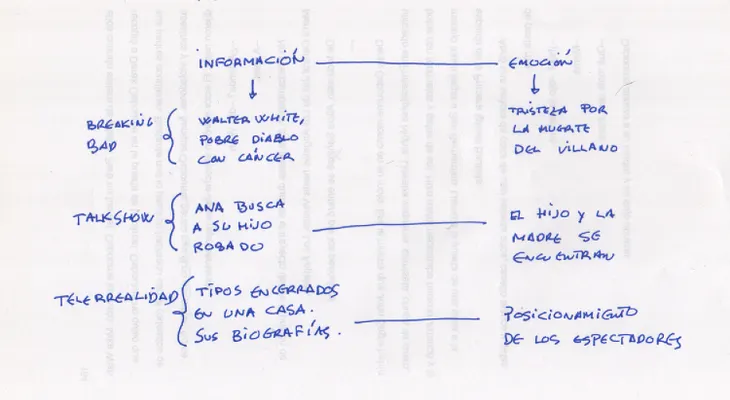 INFORMACIÓN
EMOCIÓN
BREAKING
BAD
WALTER WHITE,
POBRE DIABLO
CON CÁNCER
TRISTEZA POR
LA MUERTE
DEL VILLANO
TALKSHOW
ANA BUSCA
A SU HIJO
ROBADO
EL HIJO Y LA
MADRE SE
ENCUENTRAN
TELERREALIDAD
TIPOS ENCERRADOS
EN UNA CASA.
SUS BIOGRAFÍAS.
POSICIONAMIENTO
DE LOS ESPECTADORES